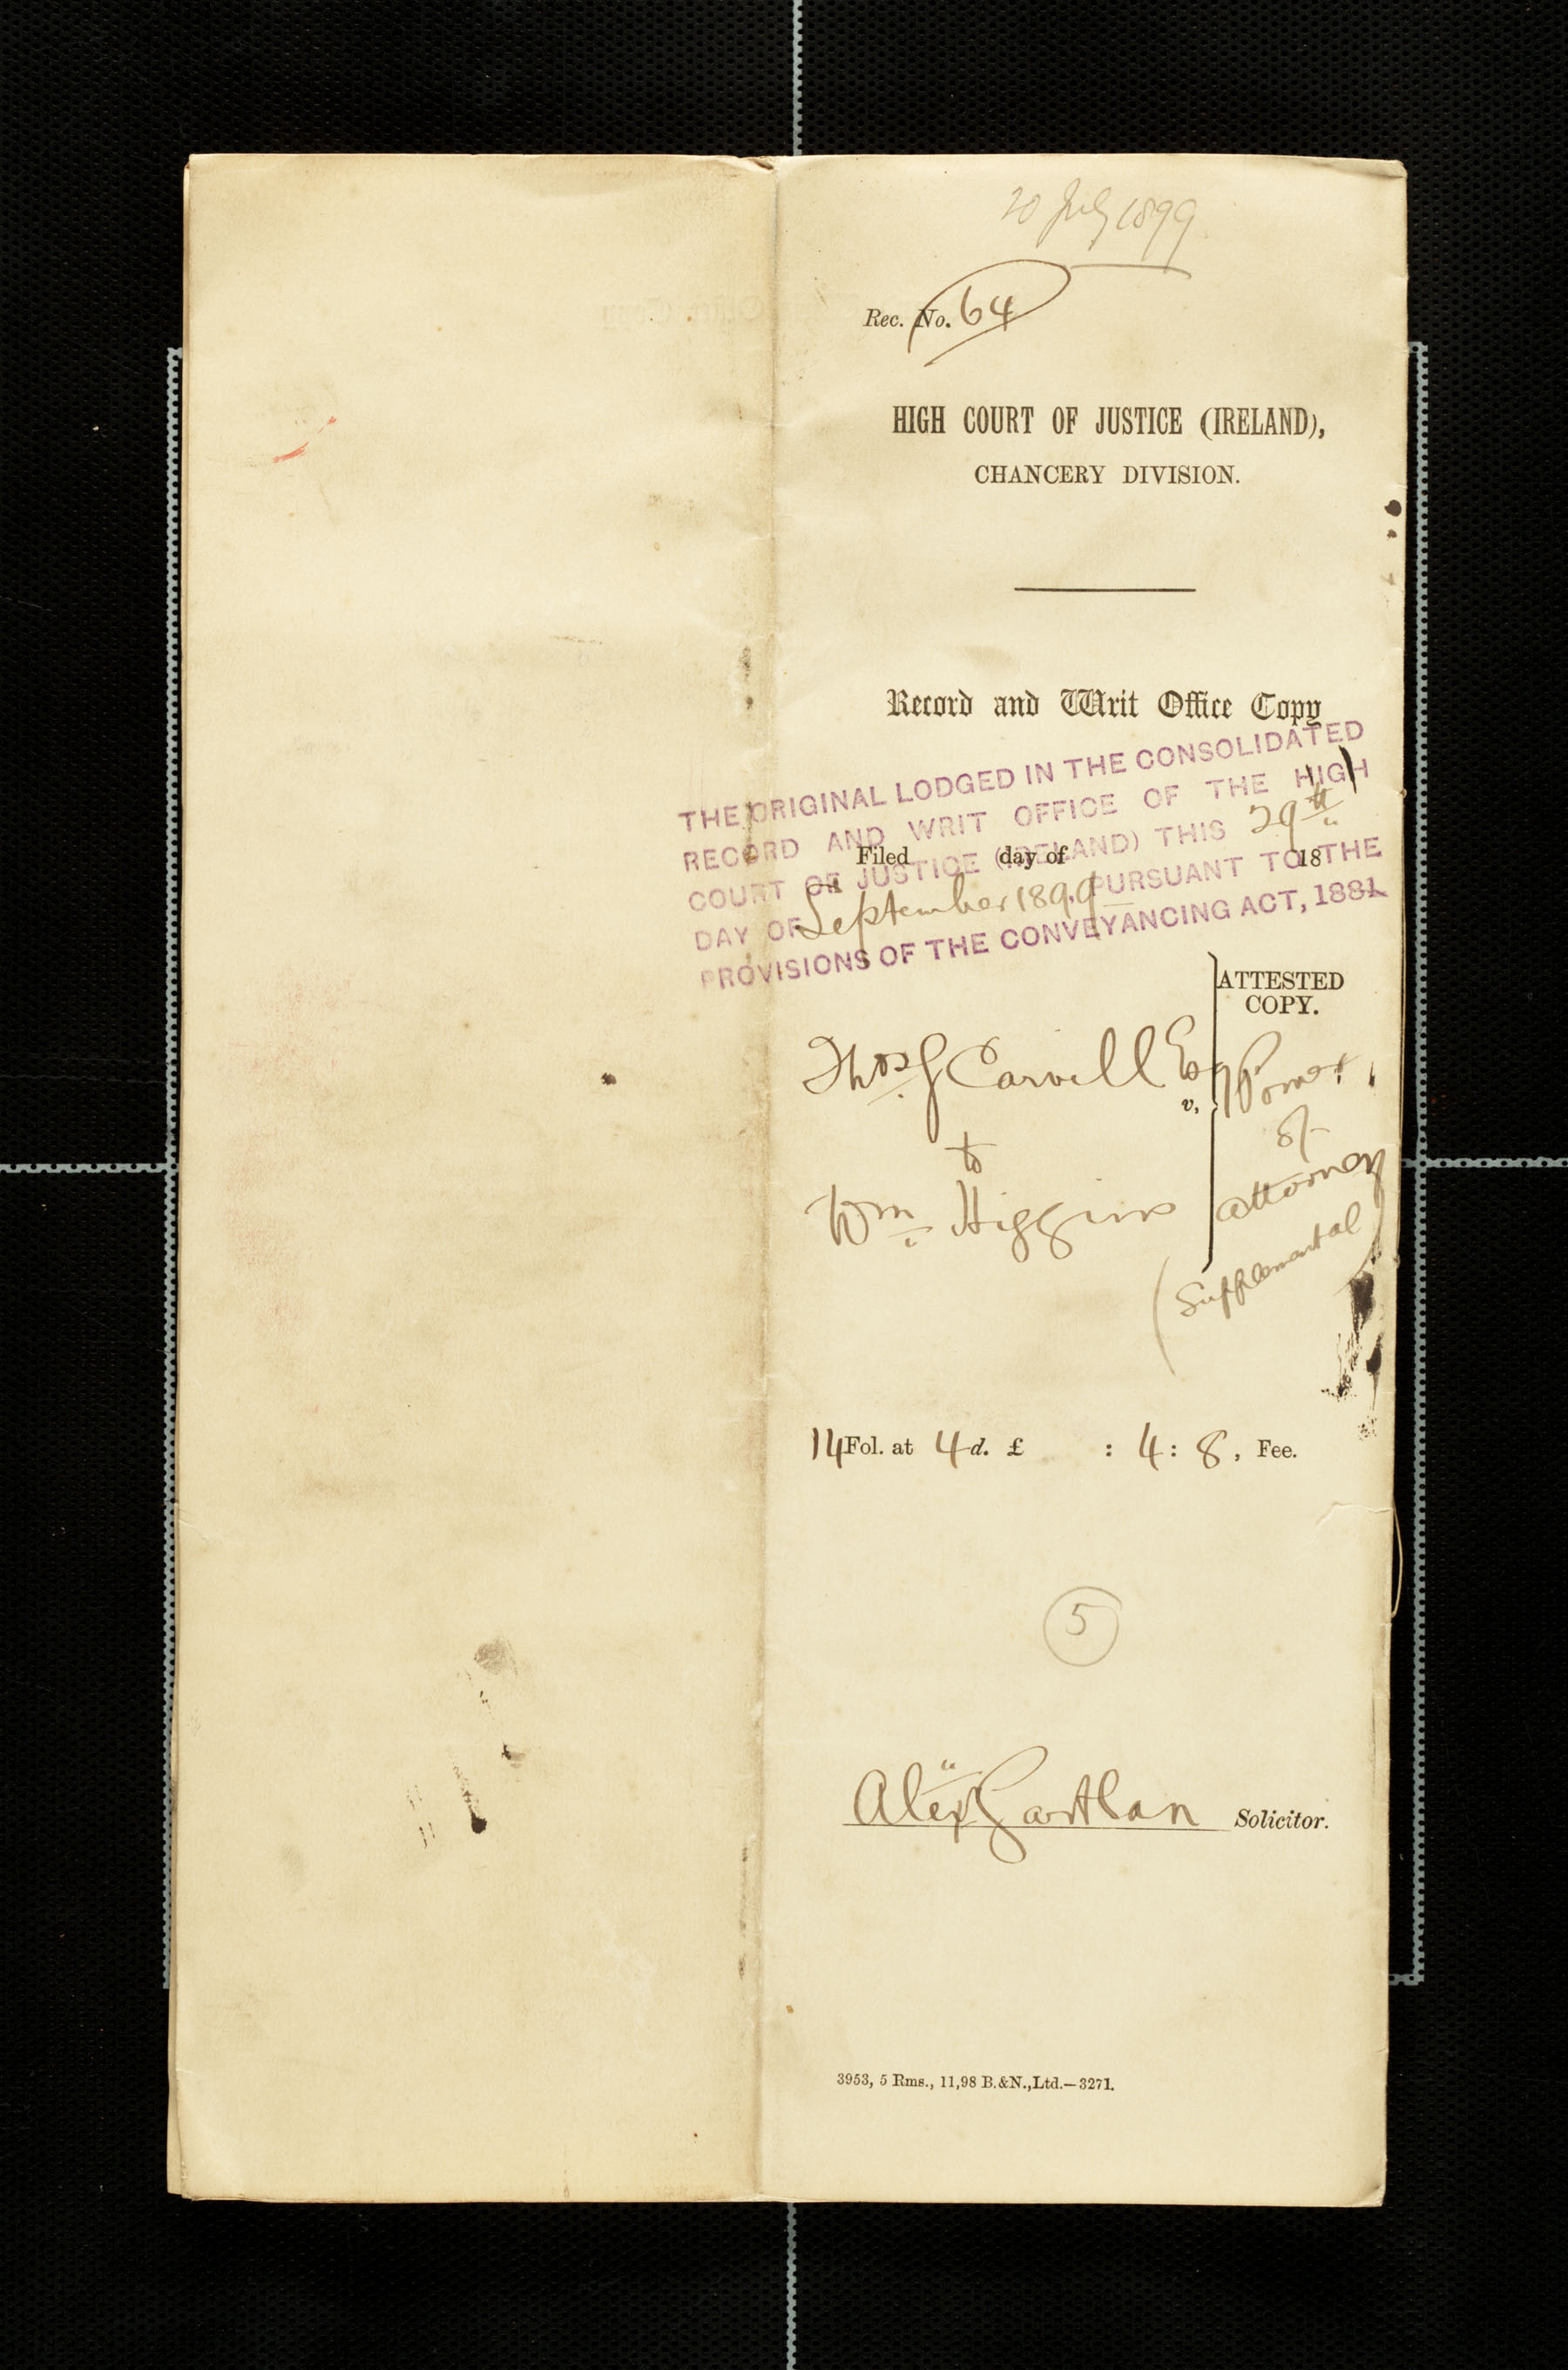 20 July 1899
Rec. No. 64
HIGH COURT OF JUSTICE (IRELAND),
CHANCERY DIVISION.
Record and Writ Office Copy
THE ORIGINAL LODGED IN THE CONSOLIDATED
RECORD AND WRIT OFFICE OF THE HIGH
COURT OF JUSTICE (IRELAND) THIS 29th
DAY OF September 1899 PURSUANT TO THE
PROVISIONS OF THE CONVEYANCING ACT, 1881
Filed day of 18
ATTESTED
COPY.
Thos J Carvill Esq
v.
to
Wm Higgins
Power
of
attorney
(Supplemental)
14 Fol. at 4 d. £ : 4 : 8, Fee.
5
Alexr Gartlan Solicitor.
3953, 5 Rms., 11,98 B.&N.,Ltd.—3271.